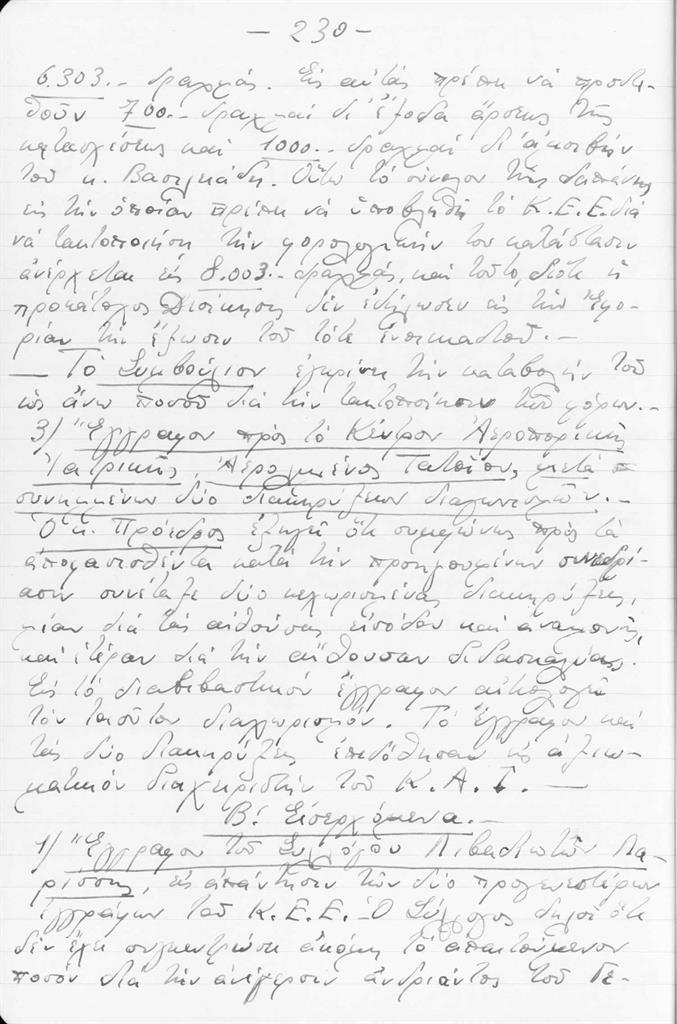 — 230 —
6.303.- δραχμάς. Εἰς αὐτάς πρέπει νά προστε-
θοῦν 700.- δραχμαί δι' ἔξοδα ἄρσεως τῆς
κατασχέσεως καί 1000.- δραχμαί δι' ἀμοιβήν
τοῦ κ. Βασιλειάδη. Οὕτω τό σύνολον τῆς δαπάνης
εἰς τήν ὁποίαν πρέπει νά ὑποβληθῇ τό Κ.Ε.Ε. διά
νά τακτοποιήσῃ τήν φορολογικήν του κατάστασιν
ἀνέρχεται εἰς 8.003.- δραχμάς, καί τοῦτο, διότι ἡ
προκάτοχος Διοίκησις δέν ἐδήλωσεν εἰς τήν Ἐφο-
ρίαν τήν ἔξωσιν τοῦ τότε ἐνοικιαστοῦ.-
— Τό Συμβούλιον ἐγκρίνει τήν καταβολήν τοῦ
ὡς ἄνω ποσοῦ διά τήν τακτοποίησιν τῶν φόρων.-
3) Ἔγγραφον πρός τό Κέντρον Ἀεροπορικῆς
Ἰατρικῆς, Ἀερολιμένος Τατοΐου, μετά
συνημμένων δύο διακηρύξεων διαγωνισμῶν.-
Ὁ κ. Πρόεδρος ἐξηγεῖ ὅτι συμφώνως πρός τά
ἀποφασισθέντα κατά τήν προηγουμένην συνεδρί-
ασιν συνέταξε δύο κεχωρισμένας διακηρύξεις,
μίαν διά τάς αἰθούσας εἰσόδου καί ἀναμονῆς,
καί ἑτέραν διά τήν αἴθουσαν διδασκαλίας.
Εἰς τό διαβιβαστικόν ἔγγραφον αἰτιολογεῖ
τόν τοιοῦτον διαχωρισμόν. Τό ἔγγραφον καί
τάς δύο διακηρύξεις ἐπεδόθησαν εἰς ἀξιω-
ματικόν διαχειριστήν τοῦ Κ.Α.Ι. —
Β! Εἰσερχόμενα.-
1) Ἔγγραφον τοῦ Συλλόγου Λιβαδιωτῶν Λα-
ρίσσης, εἰς ἀπάντησιν τῶν δύο προγενεστέρων
ἐγγράφων τοῦ Κ.Ε.Ε.- Ὁ Σύλλογος δηλοῖ ὅτι
δέν ἔχει συγκεντρώσει ἀκόμη τό ἀπαιτούμενον
ποσόν διά τήν ἀνέγερσιν ἀνδριάντος τοῦ Γε-